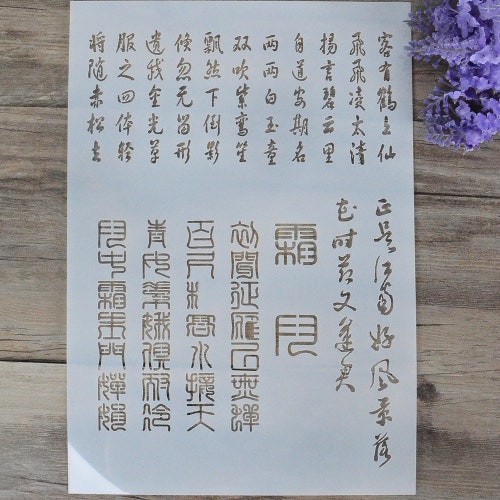 客有鶴上仙
飛飛凌太清
揚言碧云里
自道安期名
两两白玉童
双吹紫鸾笙
飄然下倒影
倏忽无留形
遺我金光草
服之四体轻
将随赤松去
正是江南好風景落
花时节又逢君
霜月
初聞征雁已無蟬
百尺樓高水接天
青女素娥俱耐冷
月中霜里鬥嬋娟